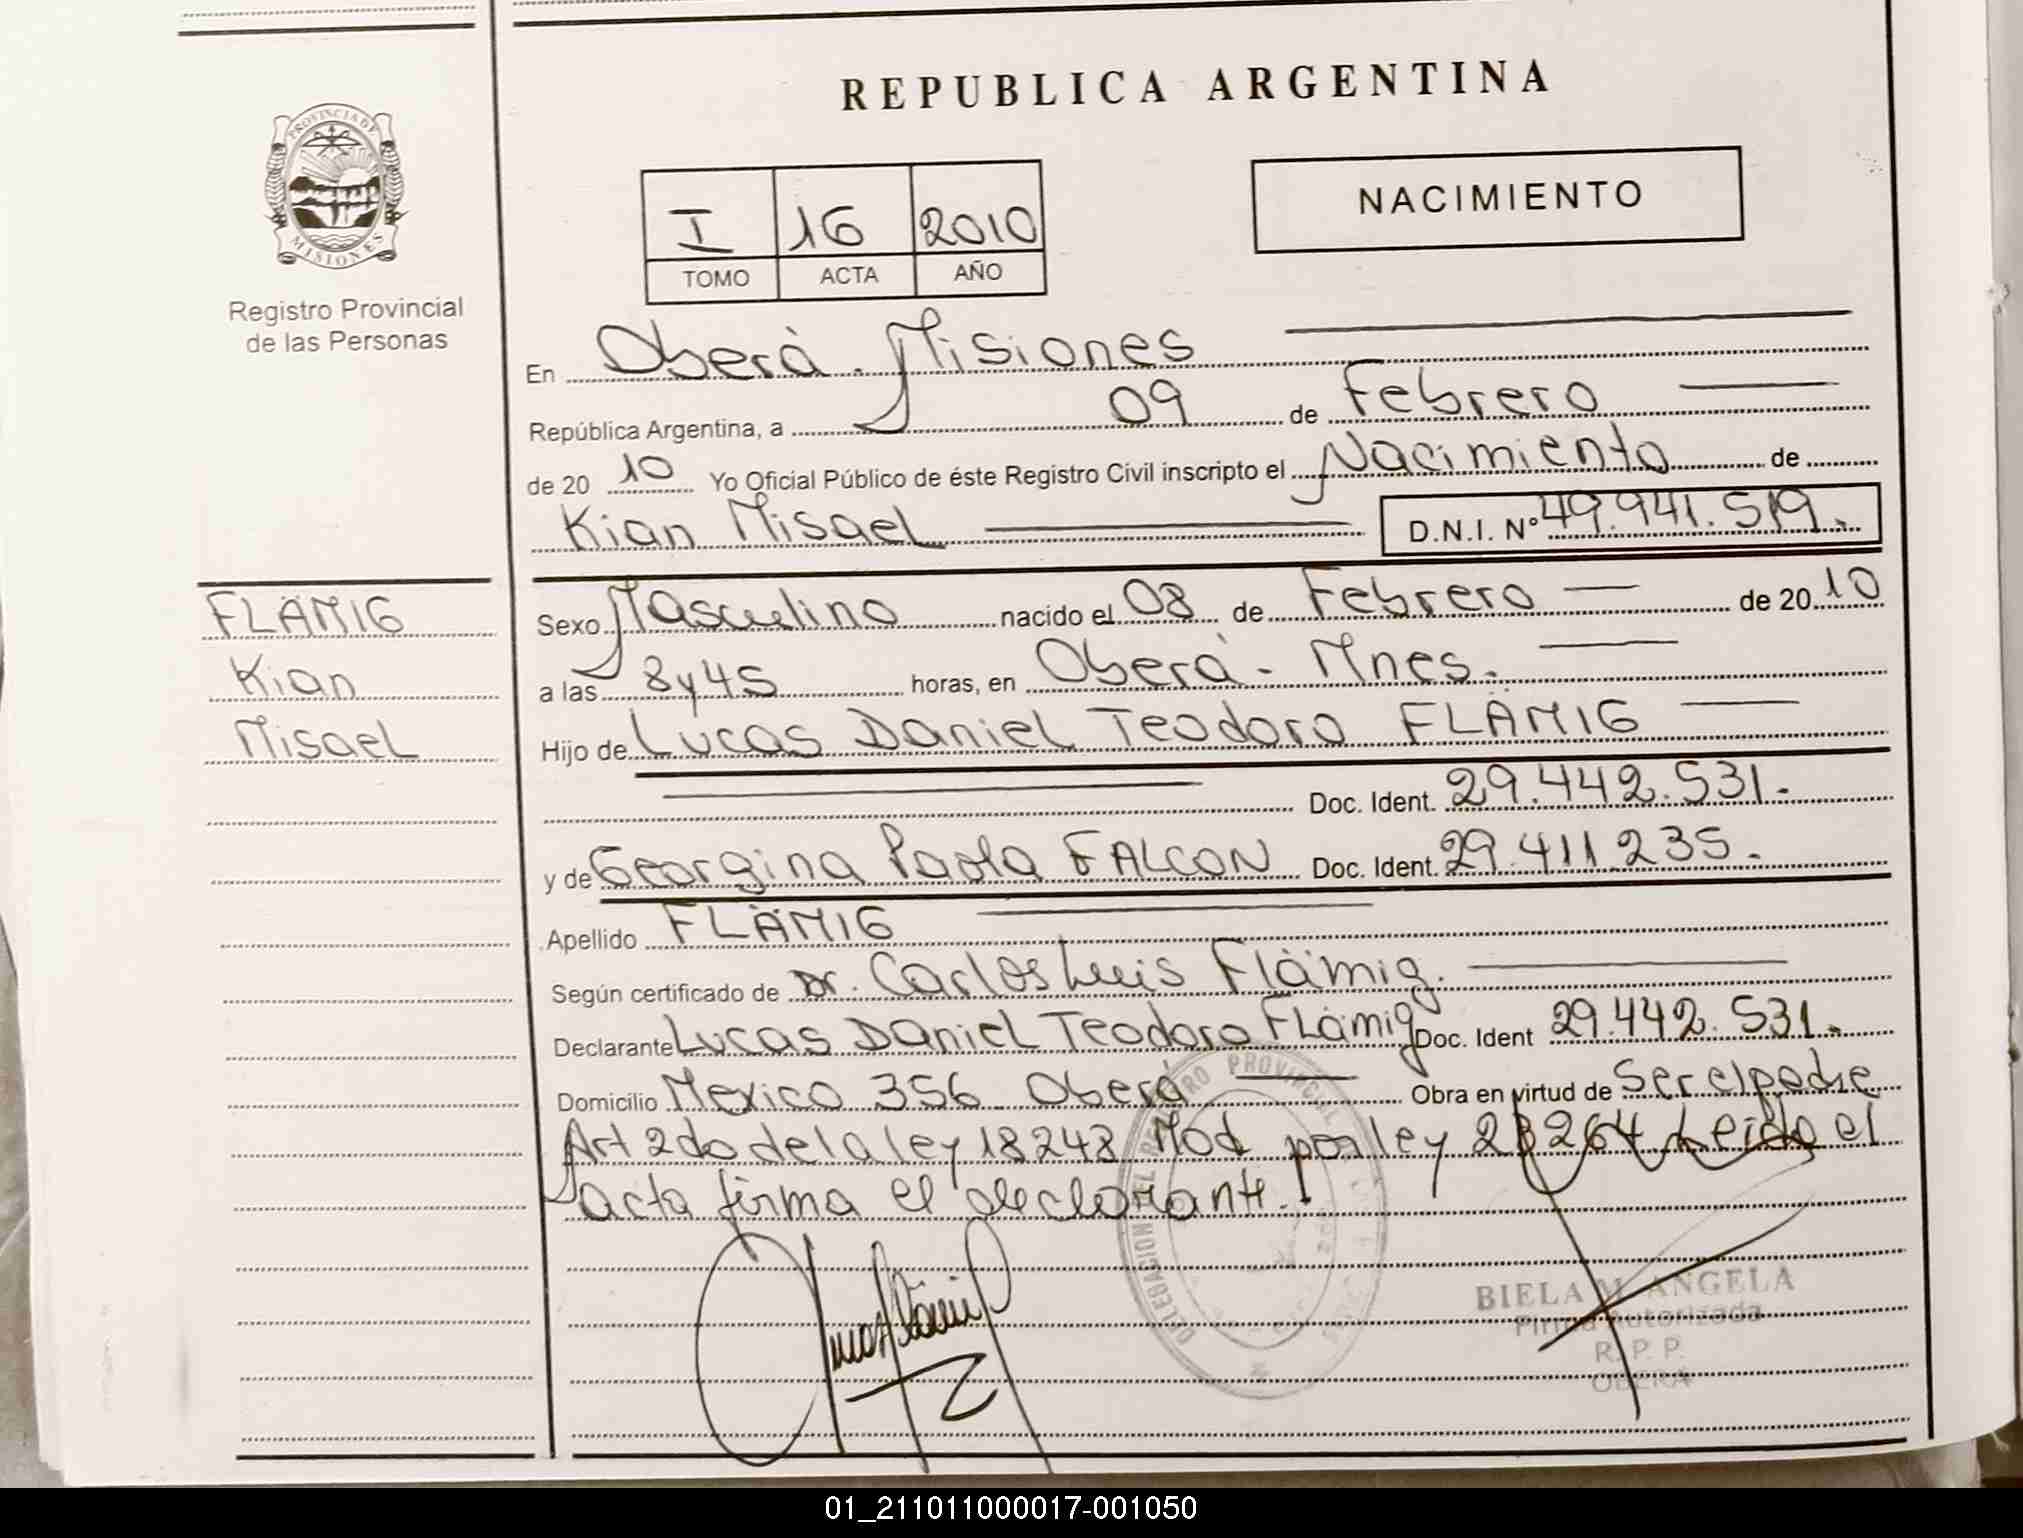 REPUBLICA ARGENTINA
PROVINCIA DE
MISIONES
Registro Provincial
de las Personas
NACIMIENTO
I 16 2010
TOMO ACTA AÑO
En Oberà. Misiones
República Argentina, a 09 de Febrero
de 20 10 Yo Oficial Público de éste Registro Civil inscripto el Nacimiento de
Kian Misael D.N.I. Nº 49.941.519.
FLÄMIG
Kian
Misael
Sexo Masculino nacido el 08 de Febrero de 20 10
a las 8 y 45 horas, en Oberà - Mnes.
Hijo de Lucas Daniel Teodoro FLÄMIG
Doc. Ident. 29.442.531.
y de Georgina Paola FALCON Doc. Ident. 29.411.235.
Apellido FLÄMIG
Según certificado de Dr. Carlos Luis Flämig.
Declarante Lucas Daniel Teodoro Flämig Doc. Ident 29.442.531.
Domicilio Mexico 356 Oberá Obra en virtud de Ser el padre
Art 2do de la ley 18248 Mod por ley 23264 Leida el
acta firma el declarante.
DELEGACION DEL REGISTRO PROVINCIAL
BIELA M. ANGELA
Firma Autorizada
R. P. P.
OBERA
01_211011000017-001050